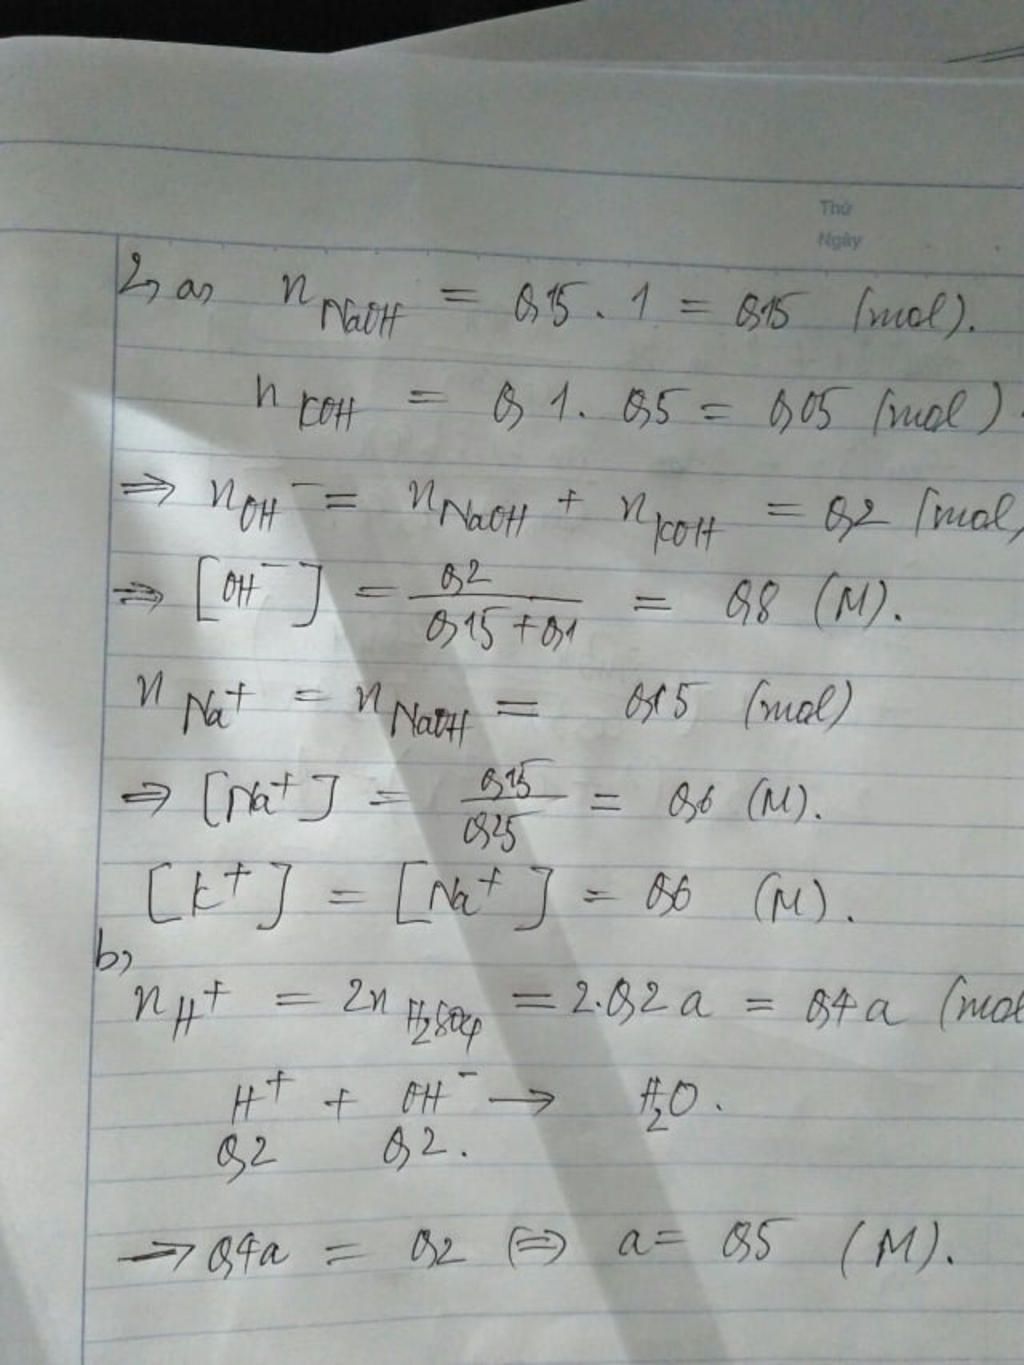 Thứ
Ngày
2, a, n NaOH = 0,15 . 1 = 0,15 (mol).
n KOH = 0,1. 0,5 = 0,05 (mol).
⇒ n OH⁻ = n NaOH + n KOH = 0,2 (mol)
⇒ [OH⁻] = 0,2 / 0,15 + 0,1 = 0,8 (M).
n Na⁺ = n NaOH = 0,15 (mol)
⇒ [Na⁺] = 0,15 / 0,25 = 0,6 (M).
[K⁺] = [Na⁺] = 0,6 (M).
b,
n H⁺ = 2n H₂SO₄ = 2.0,2a = 0,4a (mol
H⁺ + OH⁻ → H₂O.
0,2 0,2.
→ 0,4a = 0,2 ⇔ a = 0,5 (M).